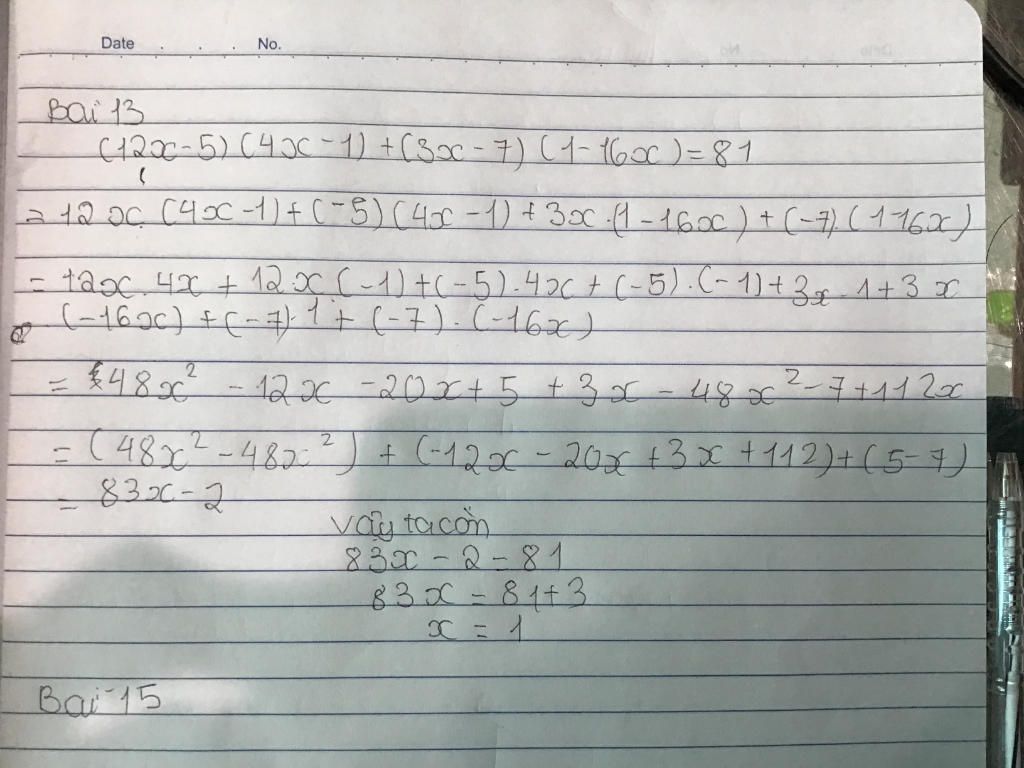 Date . . . No.
Bai 13
(12x-5)(4x-1)+(3x-7)(1-16x)=81
=12x.(4x-1)+(-5)(4x-1)+3x.(1-16x)+(-7).(1-16x)
=12x.4x+12x(-1)+(-5).4x+(-5).(-1)+3x.1+3x
(-16x)+(-7).1+(-7).(-16x)
=48x²-12x-20x+5+3x-48x²-7+112x
=(48x²-48x²)+(-12x-20x+3x+112)+(5-7)
=83x-2
Vậy ta còn
83x-2=81
83x=81+3
x=1
Bai 15